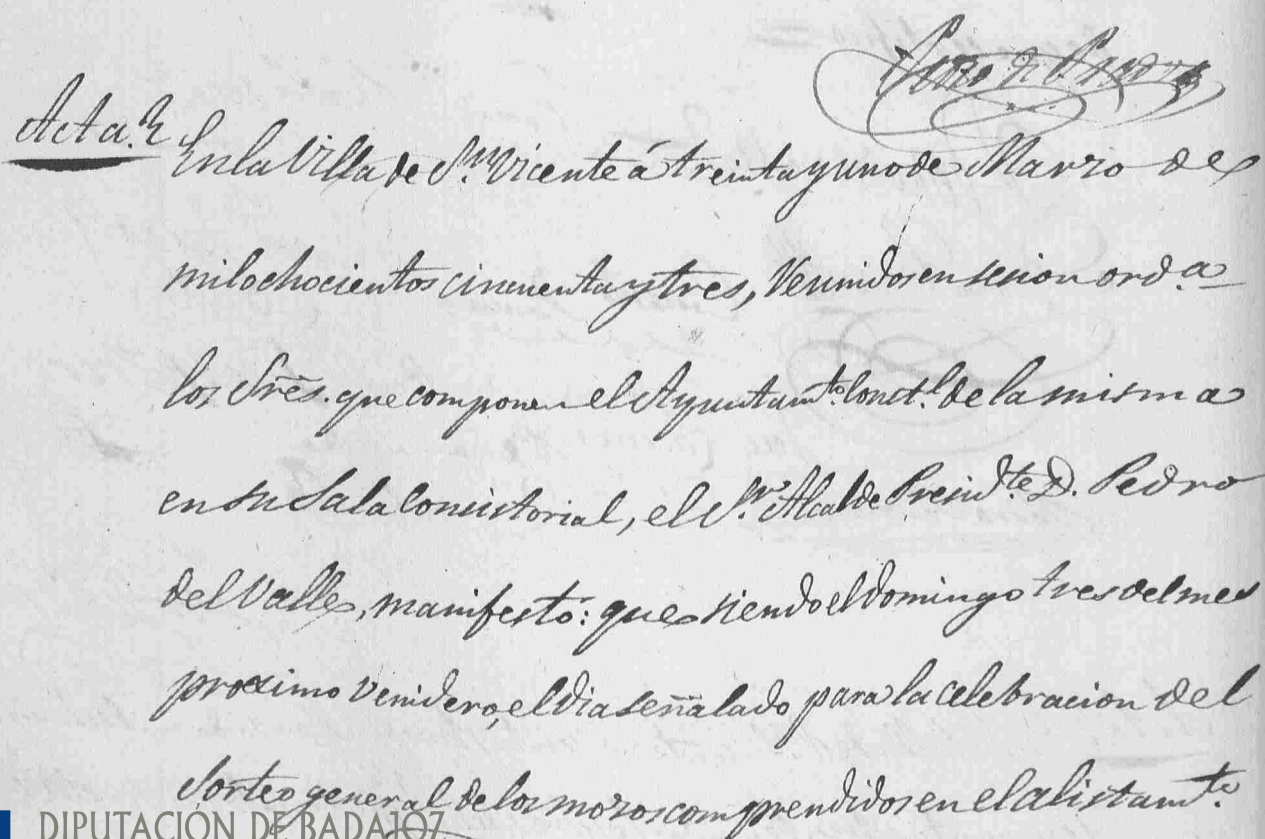 Acta.
En la Villa de S.n Vicente á treinta y uno de Marzo de
mil ochocientos cincuenta y tres, reunidos en sesion ord.a
los Sres. que componen el Ayuntam.to Const.l de la misma
en su Sala Consistorial, el S.r Alcalde Presid.te D. Pedro
del Valle, manifestó: que siendo el domingo tres del mes
proximo venidero, el dia señalado para la celebracion del
Sorteo general de los mozos comprendidos en el alistam.to
DIPUTACIÓN DE BADAJOZ